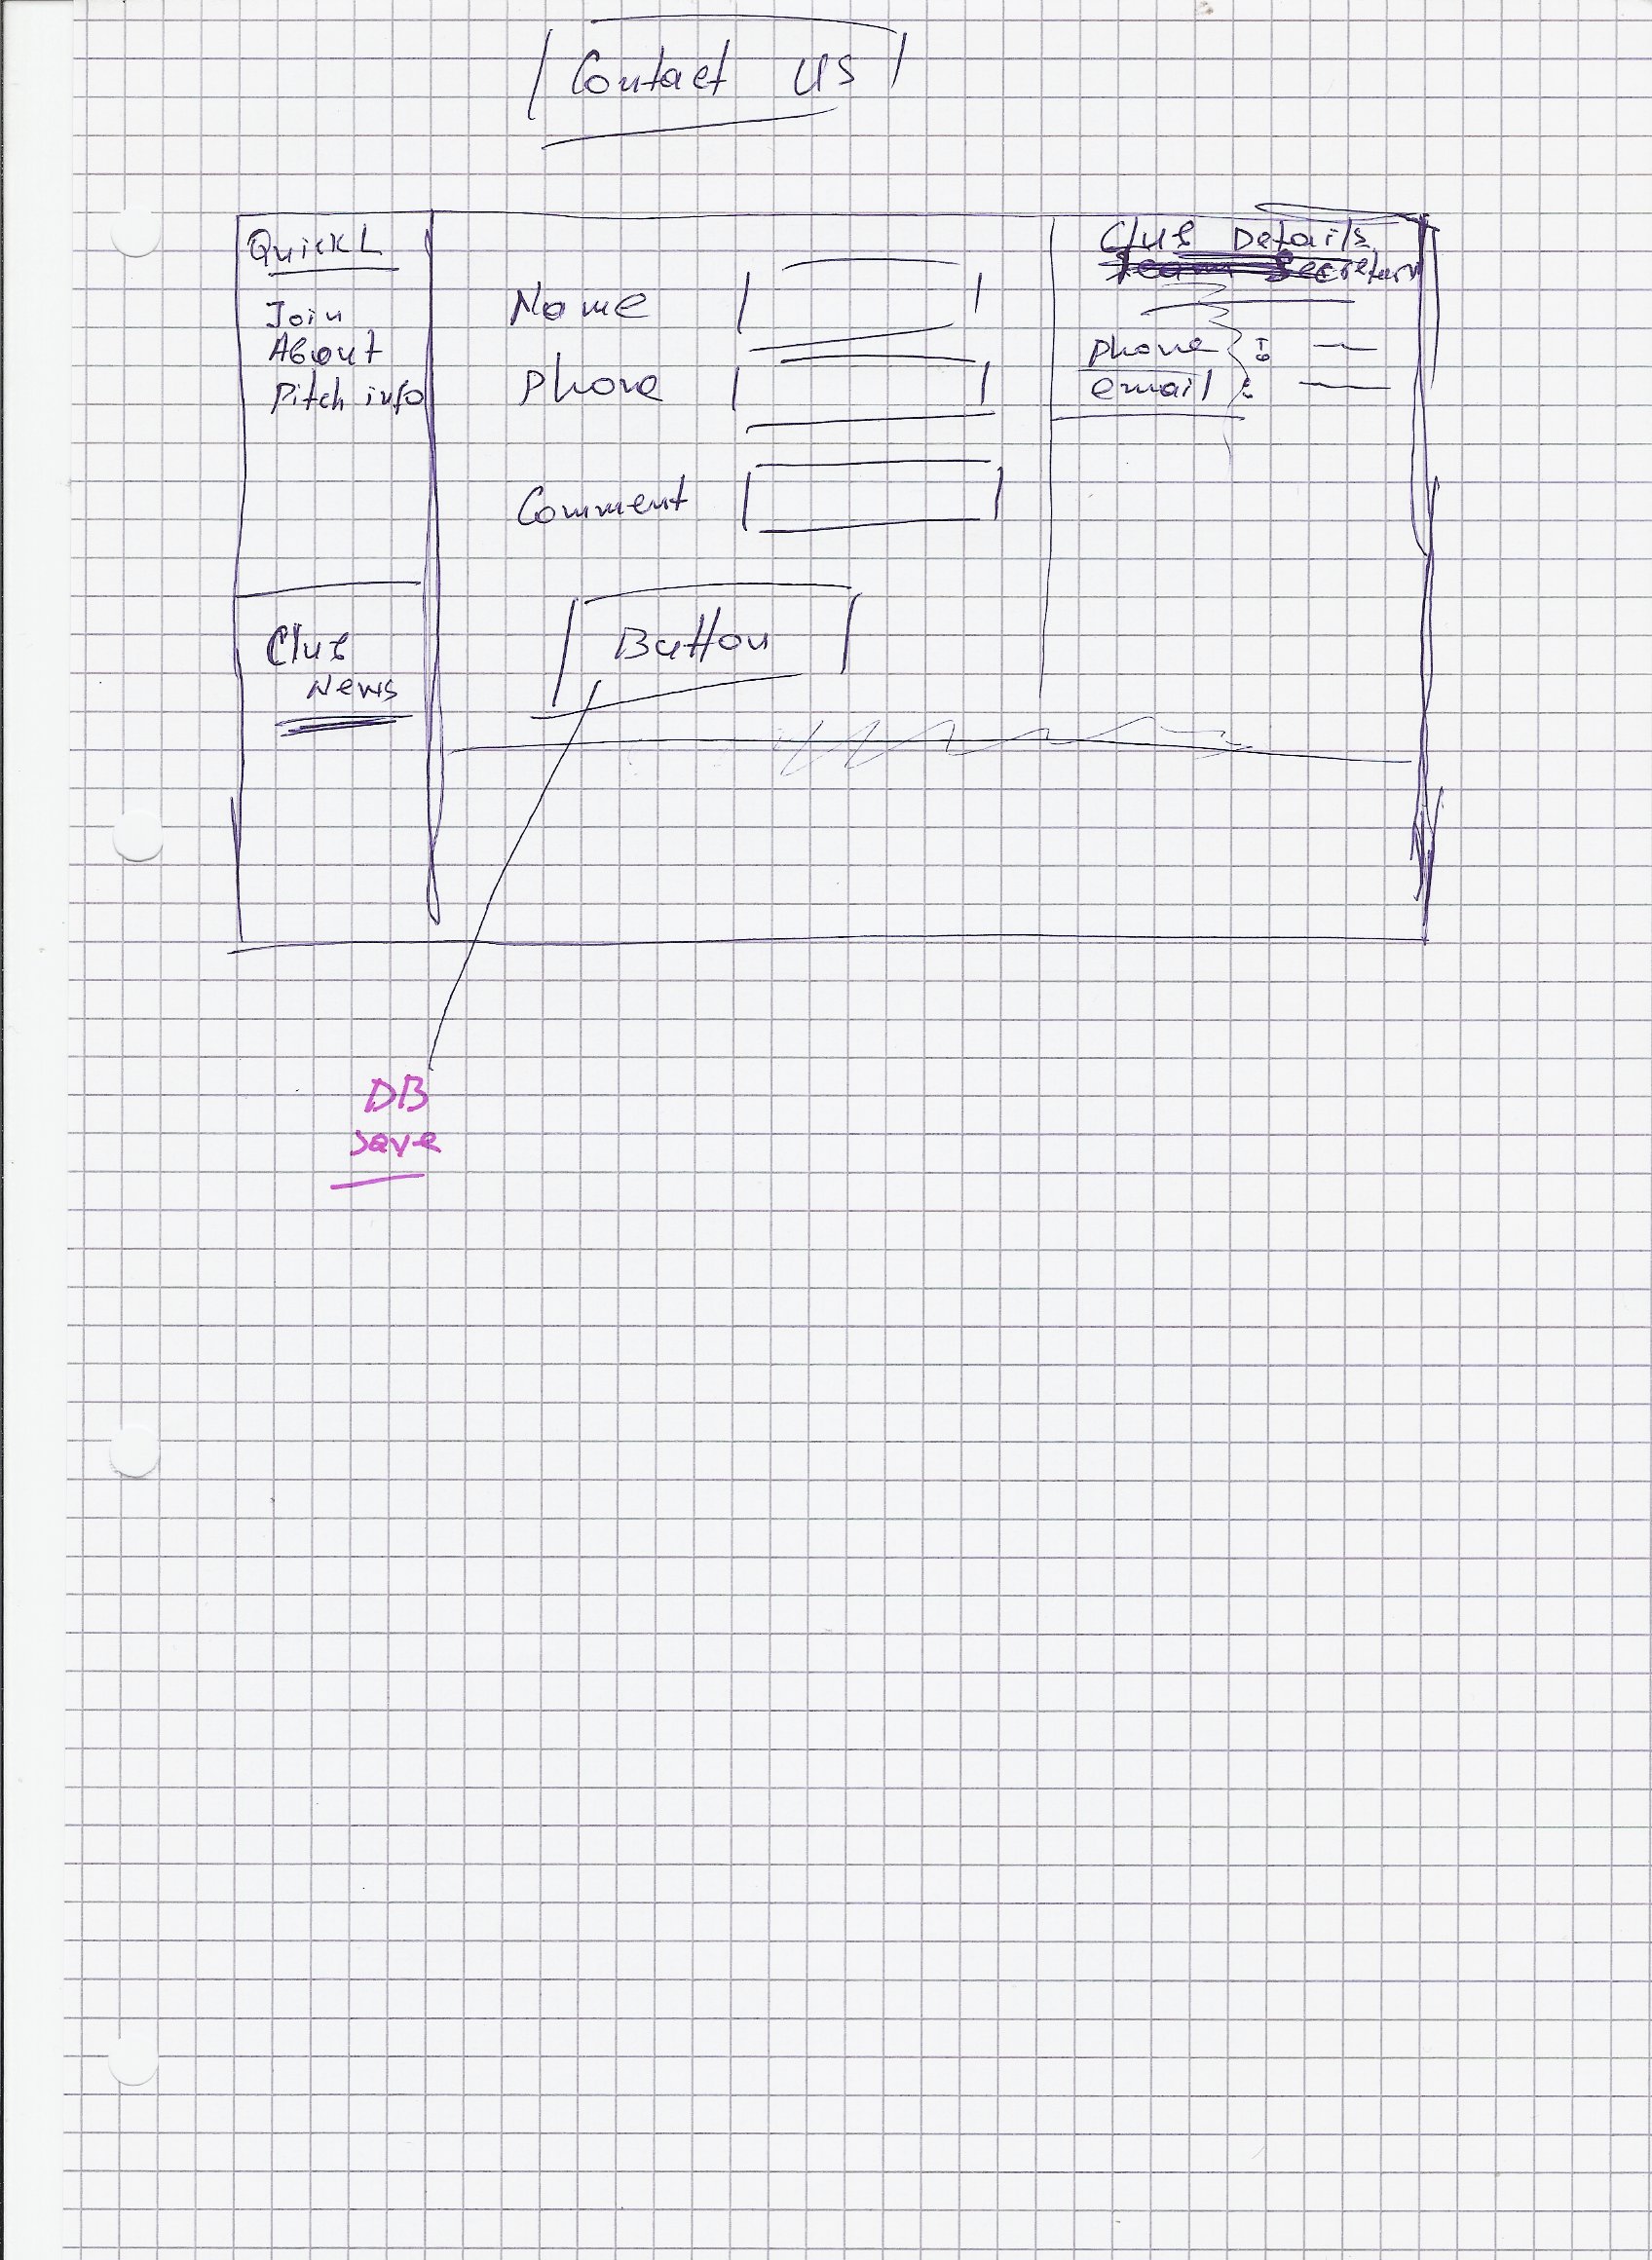 Contact US
QuickL
Join
About
Pitch info
Club
News
Name
Phone
Comment
Button
Club Details
Team Secretary
phone :
email :
DB
save